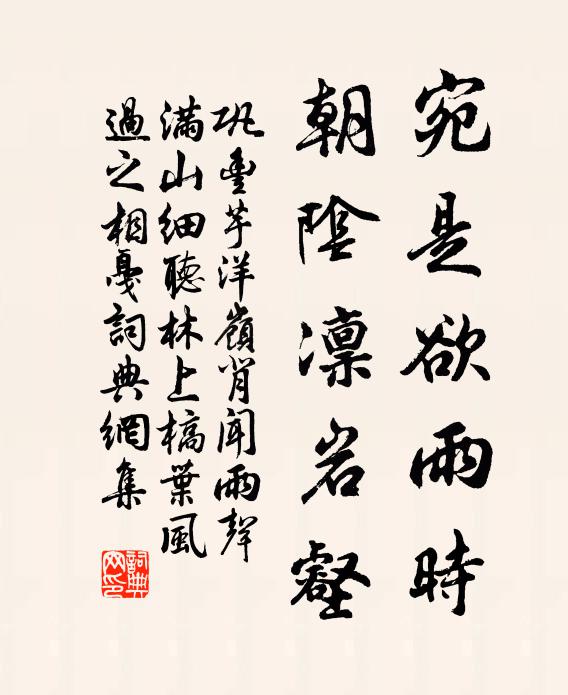 宛是欲雨時
朝陰凜岩壑
巩豐芋洋嶺背聞雨聲
滿山細聽林上槁葉風
過之相戛詞典網集
詞典网印